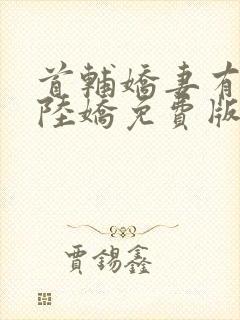 首輔嬌妻有
陸嬌免費版
賈錫鑫